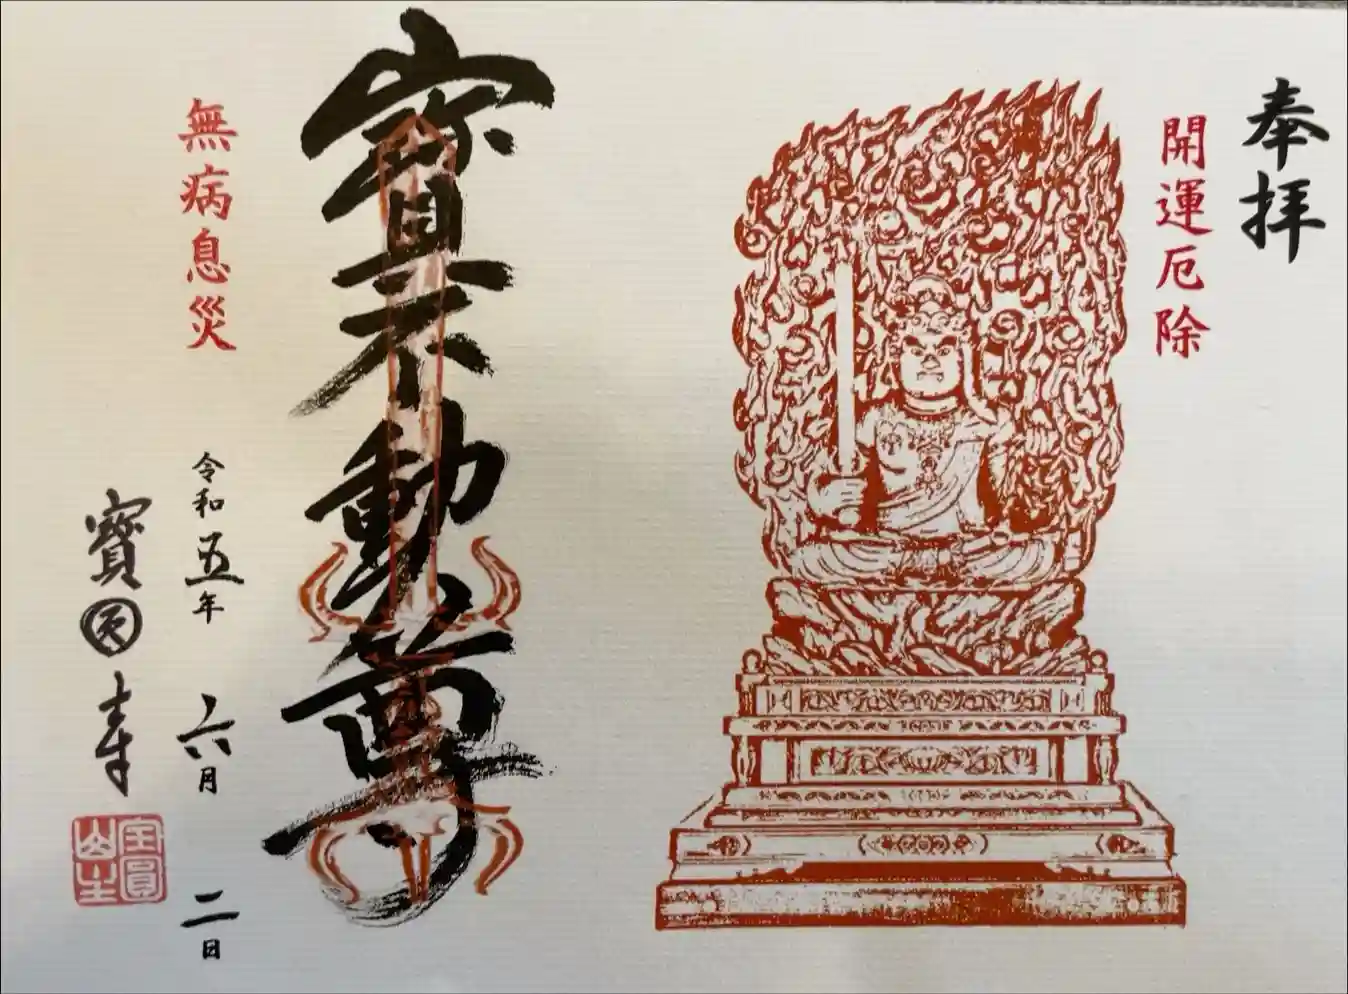 奉拝
開運厄除
寳不動尊
無病息災
令和五年 六月 二日
寳圓寺